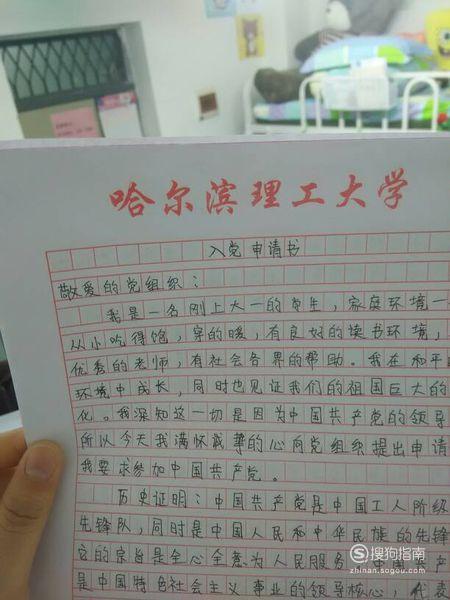 哈尔滨理工大学
入党申请书
敬爱的党组织：
我是一名刚上大一的女生，家庭环境一
从小吃得饱，穿的暖，有良好的读书环境，
优秀的老师，有社会各界的帮助。我在和平
环境中成长，同时也见证我们的祖国巨大的
化。我深知这一切是因为中国共产党的领导
所以今天我满怀诚挚的心向党组织提出申请
我要求参加中国共产党。
历史证明：中国共产党是中国工人阶级
先锋队，同时是中国人民和中华民族的先锋
它的宗旨是全心全意为人民服务 中国 产
是中国特色社会主义事业的领导核心，代表
搜狗指南
zhinan.sogou.com